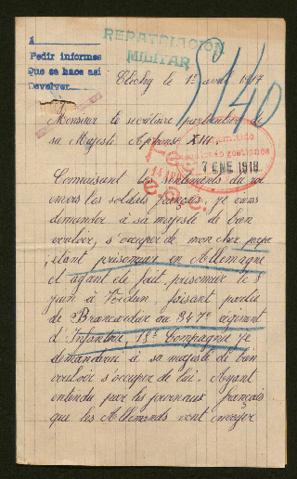 A
Pedir informes
Que se hace así
Devolver
REPATRIACION
MILITAR
5/140
Clichy le 1er avril 1917
Monsieur le secrétaire particulier de
sa Majesté Alphonse XIII
7 ENE 1918
Connaissant les sentiments du roi
envers les soldats français, je viens
demander à sa majesté de bien
vouloir, s'occuper de mon cher père
étant prisonnier en Allemagne
et ayant été fait prisonnier le 8
juin à Verdun faisant partie
de Brancardier du 347e régiment
d'Infanterie, 18e Compagnie je
demanderai à sa majesté de bien
vouloir s'occuper de lui. Ayant
entendu par les journaux français
que les Allemands vont envoyer